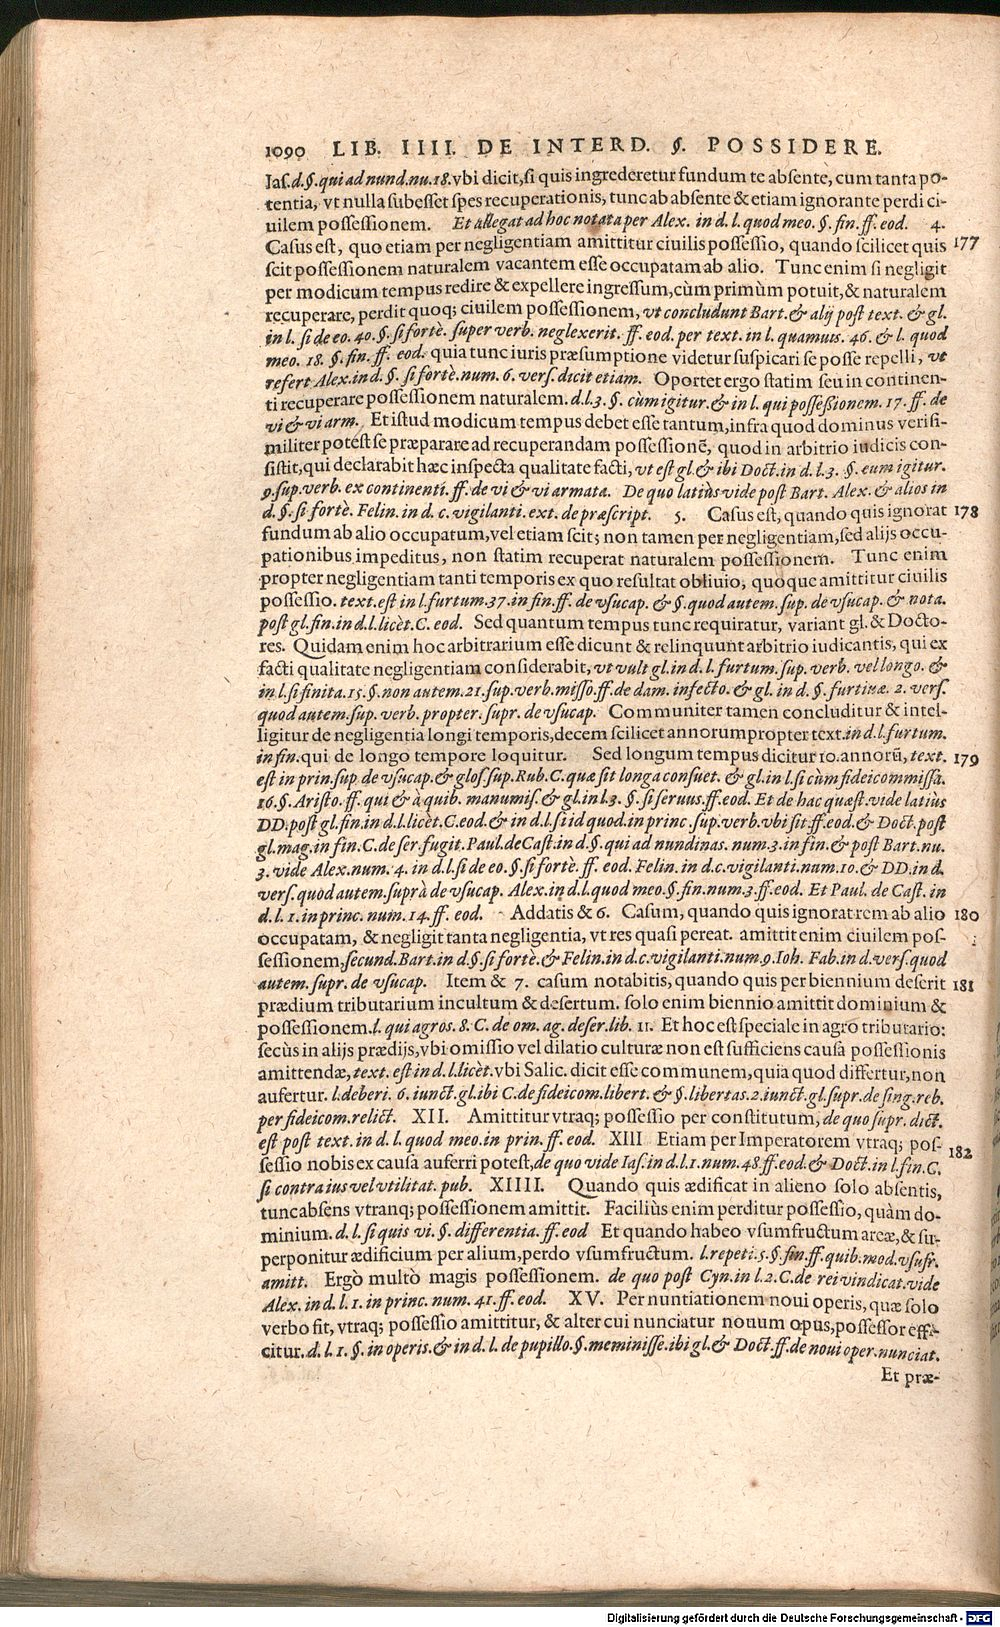 1090 LIB. IIII. DE INTERD. §. POSSIDERE.
Iaſ.d.§.qui ad nund.nu.18.vbi dicit,ſi quis ingrederetur fundum te abſente, cum tanta po-
tentia, vt nulla ſubeſſet ſpes recuperationis, tunc ab abſente & etiam ignorante perdi ci-
uilem poſſeſſionem. Et allegat ad hoc notata per Alex. in d. l. quod meo. §. fin. ff. eod. 4.
Caſus eſt, quo etiam per negligentiam amittitur ciuilis poſſeſſio, quando ſcilicet quis 177
ſcit poſſeſſionem naturalem vacantem eſſe occupatam ab alio. Tunc enim ſi negligit
per modicum tempus redire & expellere ingreſſum,cùm primùm potuit,& naturalem
recuperare, perdit quoq; ciuilem poſſeſſionem, vt concludunt Bart.& alij poſt text. & gl.
in l. ſi de eo. 40.§.ſi fortè. ſuper verb. neglexerit. ff. eod. per text. in l. quamuis. 46. & l. quod
meo. 18. §. fin. ff. eod. quia tunc iuris præſumptione videtur ſuſpicari ſe poſſe repelli, vt
refert Alex.in d. §. ſi fortè.num. 6. verſ. dicit etiam. Oportet ergo ſtatim ſeu in continen-
ti recuperare poſſeſſionem naturalem. d.l.3. §. cùm igitur.& in l. qui poſſeßionem. 17. ff. de
vi & vi arm. Et iſtud modicum tempus debet eſſe tantum,infra quod dominus veriſi-
militer poteſt ſe præparare ad recuperandam poſſeſſionē, quod in arbitrio iudicis con-
ſiſtit,qui declarabit hæc inſpecta qualitate facti, vt eſt gl.& ibi Doct.in d.l.3. §. eum igitur.
9.ſup.verb. ex continenti. ff.de vi & vi armata. De quo latiùs vide poſt Bart. Alex. & alios in
d. §. ſi fortè. Felin. in d. c. vigilanti. ext. de præſcript. 5. Caſus eſt, quando quis ignorat 178
fundum ab alio occupatum,vel etiam ſcit; non tamen per negligentiam,ſed alijs occu-
pationibus impeditus, non ſtatim recuperat naturalem poſſeſſionem. Tunc enim
propter negligentiam tanti temporis ex quo reſultat obliuio, quoque amittitur ciuilis
poſſeſſio. text.eſt in l.furtum.37.in fin.ff. de vſucap. & §.quod autem.ſup. de vſucap. & nota.
poſt gl.fin.in d.l.licèt.C. eod. Sed quantum tempus tunc requiratur, variant gl. & Docto-
res. Quidam enim hoc arbitrarium eſſe dicunt & relinquunt arbitrio iudicantis, qui ex
facti qualitate negligentiam conſiderabit, vt vult gl.in d. l. furtum. ſup. verb. vel longo. &
in l.ſi finita.15.§.non autem.21.ſup.verb.miſſo.ff.de dam. infecto. & gl. in d. §. furtiuæ. 2. verſ.
quod autem.ſup. verb. propter. ſupr. de vſucap. Communiter tamen concluditur & intel-
ligitur de negligentia longi temporis,decem ſcilicet annorum propter text.in d.l.furtum.
in fin.qui de longo tempore loquitur. Sed longum tempus dicitur 10.annorū, text. 179
eſt in prin.ſup de vſucap.& gloſ.ſup.Rub.C.quæ ſit longa conſuet. & gl.in l.ſi cùm fideicommiſſa.
16.§. Ariſto. ff. qui & à quib. manumiſ.& gl.in l.3. §.ſi ſeruus.ff.eod. Et de hac quæſt.vide latiùs
DD.poſt gl.fin.in d.l.licèt.C.eod.& in d.l.ſi id quod.in princ.ſup.verb.vbi ſit.ff.eod.& Doct.poſt
gl.mag.in fin.C.de ſer.fugit.Paul.de Caſt.in d.§.qui ad nundinas. num.3.in fin.& poſt Bart.nu.
3. vide Alex.num. 4. in d.l.ſi de eo.§.ſi fortè. ff. eod. Felin. in d.c.vigilanti.num.10.& DD.in d.
verſ.quod autem.ſuprà de vſucap. Alex.in d.l.quod meo.§.fin.num.3.ff.eod. Et Paul. de Caſt. in
d. l. 1. in princ. num. 14. ff. eod. Addatis & 6. Caſum, quando quis ignorat rem ab alio 180
occupatam, & negligit tanta negligentia, vt res quaſi pereat. amittit enim ciuilem poſ-
ſeſſionem,ſecund.Bart.in d.§.ſi fortè.& Felin.in d.c.vigilanti.num.9.Ioh. Fab.in d.verſ.quod
autem. ſupr. de vſucap. Item & 7. caſum notabitis, quando quis per biennium deſerit 181
prædium tributarium incultum & deſertum. ſolo enim biennio amittit dominium &
poſſeſſionem.l. qui agros. 8. C. de om. ag. deſer.lib. 11. Et hoc eſt ſpeciale in agro tributario:
ſecùs in alijs prædijs,vbi omiſſio vel dilatio culturæ non eſt ſufficiens cauſa poſſeſſionis
amittendæ,text. eſt in d.l.licèt.vbi Salic. dicit eſſe communem,quia quod differtur,non
aufertur. l.deberi. 6. iunct.gl.ibi C.de fideicom.libert. & §.libertas.2.iunct.gl.ſupr.de ſing.reb.
per fideicom.relict. XII. Amittitur vtraq; poſſeſſio per conſtitutum, de quo ſupr. dict.
eſt poſt text. in d. l. quod meo.in prin. ff. eod. XIII Etiam per Imperatorem vtraq; poſ- 182
ſeſſio nobis ex cauſa auferri poteſt,de quo vide Iaſ.in d.l.1.num.48.ff.eod.& Doct.in l.fin.C.
ſi contra ius vel vtilitat. pub. XIIII. Quando quis ædificat in alieno ſolo abſentis,
tunc abſens vtranq; poſſeſſionem amittit. Faciliùs enim perditur poſſeſſio, quàm do-
minium. d. l. ſi quis vi. §. differentia. ff. eod Et quando habeo vſumfructum areæ,& ſu-
perponitur ædificium per alium,perdo vſumfructum. l.repeti.5.§.fin.ff.quib.mod.vſufr.
amitt. Ergò multò magis poſſeſſionem. de quo poſt Cyn.in l.2.C.de rei vindicat.vide
Alex. in d. l. 1. in princ. num. 41. ff. eod. XV. Per nuntiationem noui operis, quæ ſolo
verbo fit, vtraq; poſſeſſio amittitur, & alter cui nunciatur nouum opus,poſſeſſor effi-
citur. d. l. 1. §. in operis.& in d. l. de pupillo.§.meminiſſe.ibi gl.& Doct.ff.de noui oper.nunciat.
Et præ-
Digitalisierung gefördert durch die Deutsche Forschungsgemeinschaft - DFG